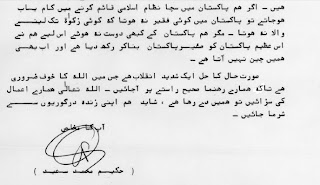 ھیں - اگر ھم پاکستان میں سچا نظام اسلامی قائم کرنے میں کام یاب
ھوجاتے تو پاکستان میں کوئی فقیر نہ ھوتا کہ کوئی زکوٰۃ تک لینے
والا نہ ھوتا - مگر ھم پاکستان کے کبھی دوست نہ ھوئے اس لیے ھم نے
اس عظیم پاکستان کو فقیرپاکستان بناکر رکھ دیا ھے اور اب بھی
ھمیں چین نہیں آتا ھے -
صورت حال کا حل ایک شدید انقلاب ھے جس میں اللہ کا خوف ضروری
ھے تاکہ ھمارے رھنما صحیح راستے پر آجائیں - اللہ تعالٰی ھمارے اعمال
کی سزائیں تو ھمیں دے رھا ھے ، شاید ھم اپنی زندہ درگوریوں سے
شرما جائیں -
آپ کا مخلص
( حکیم محمد سعید )